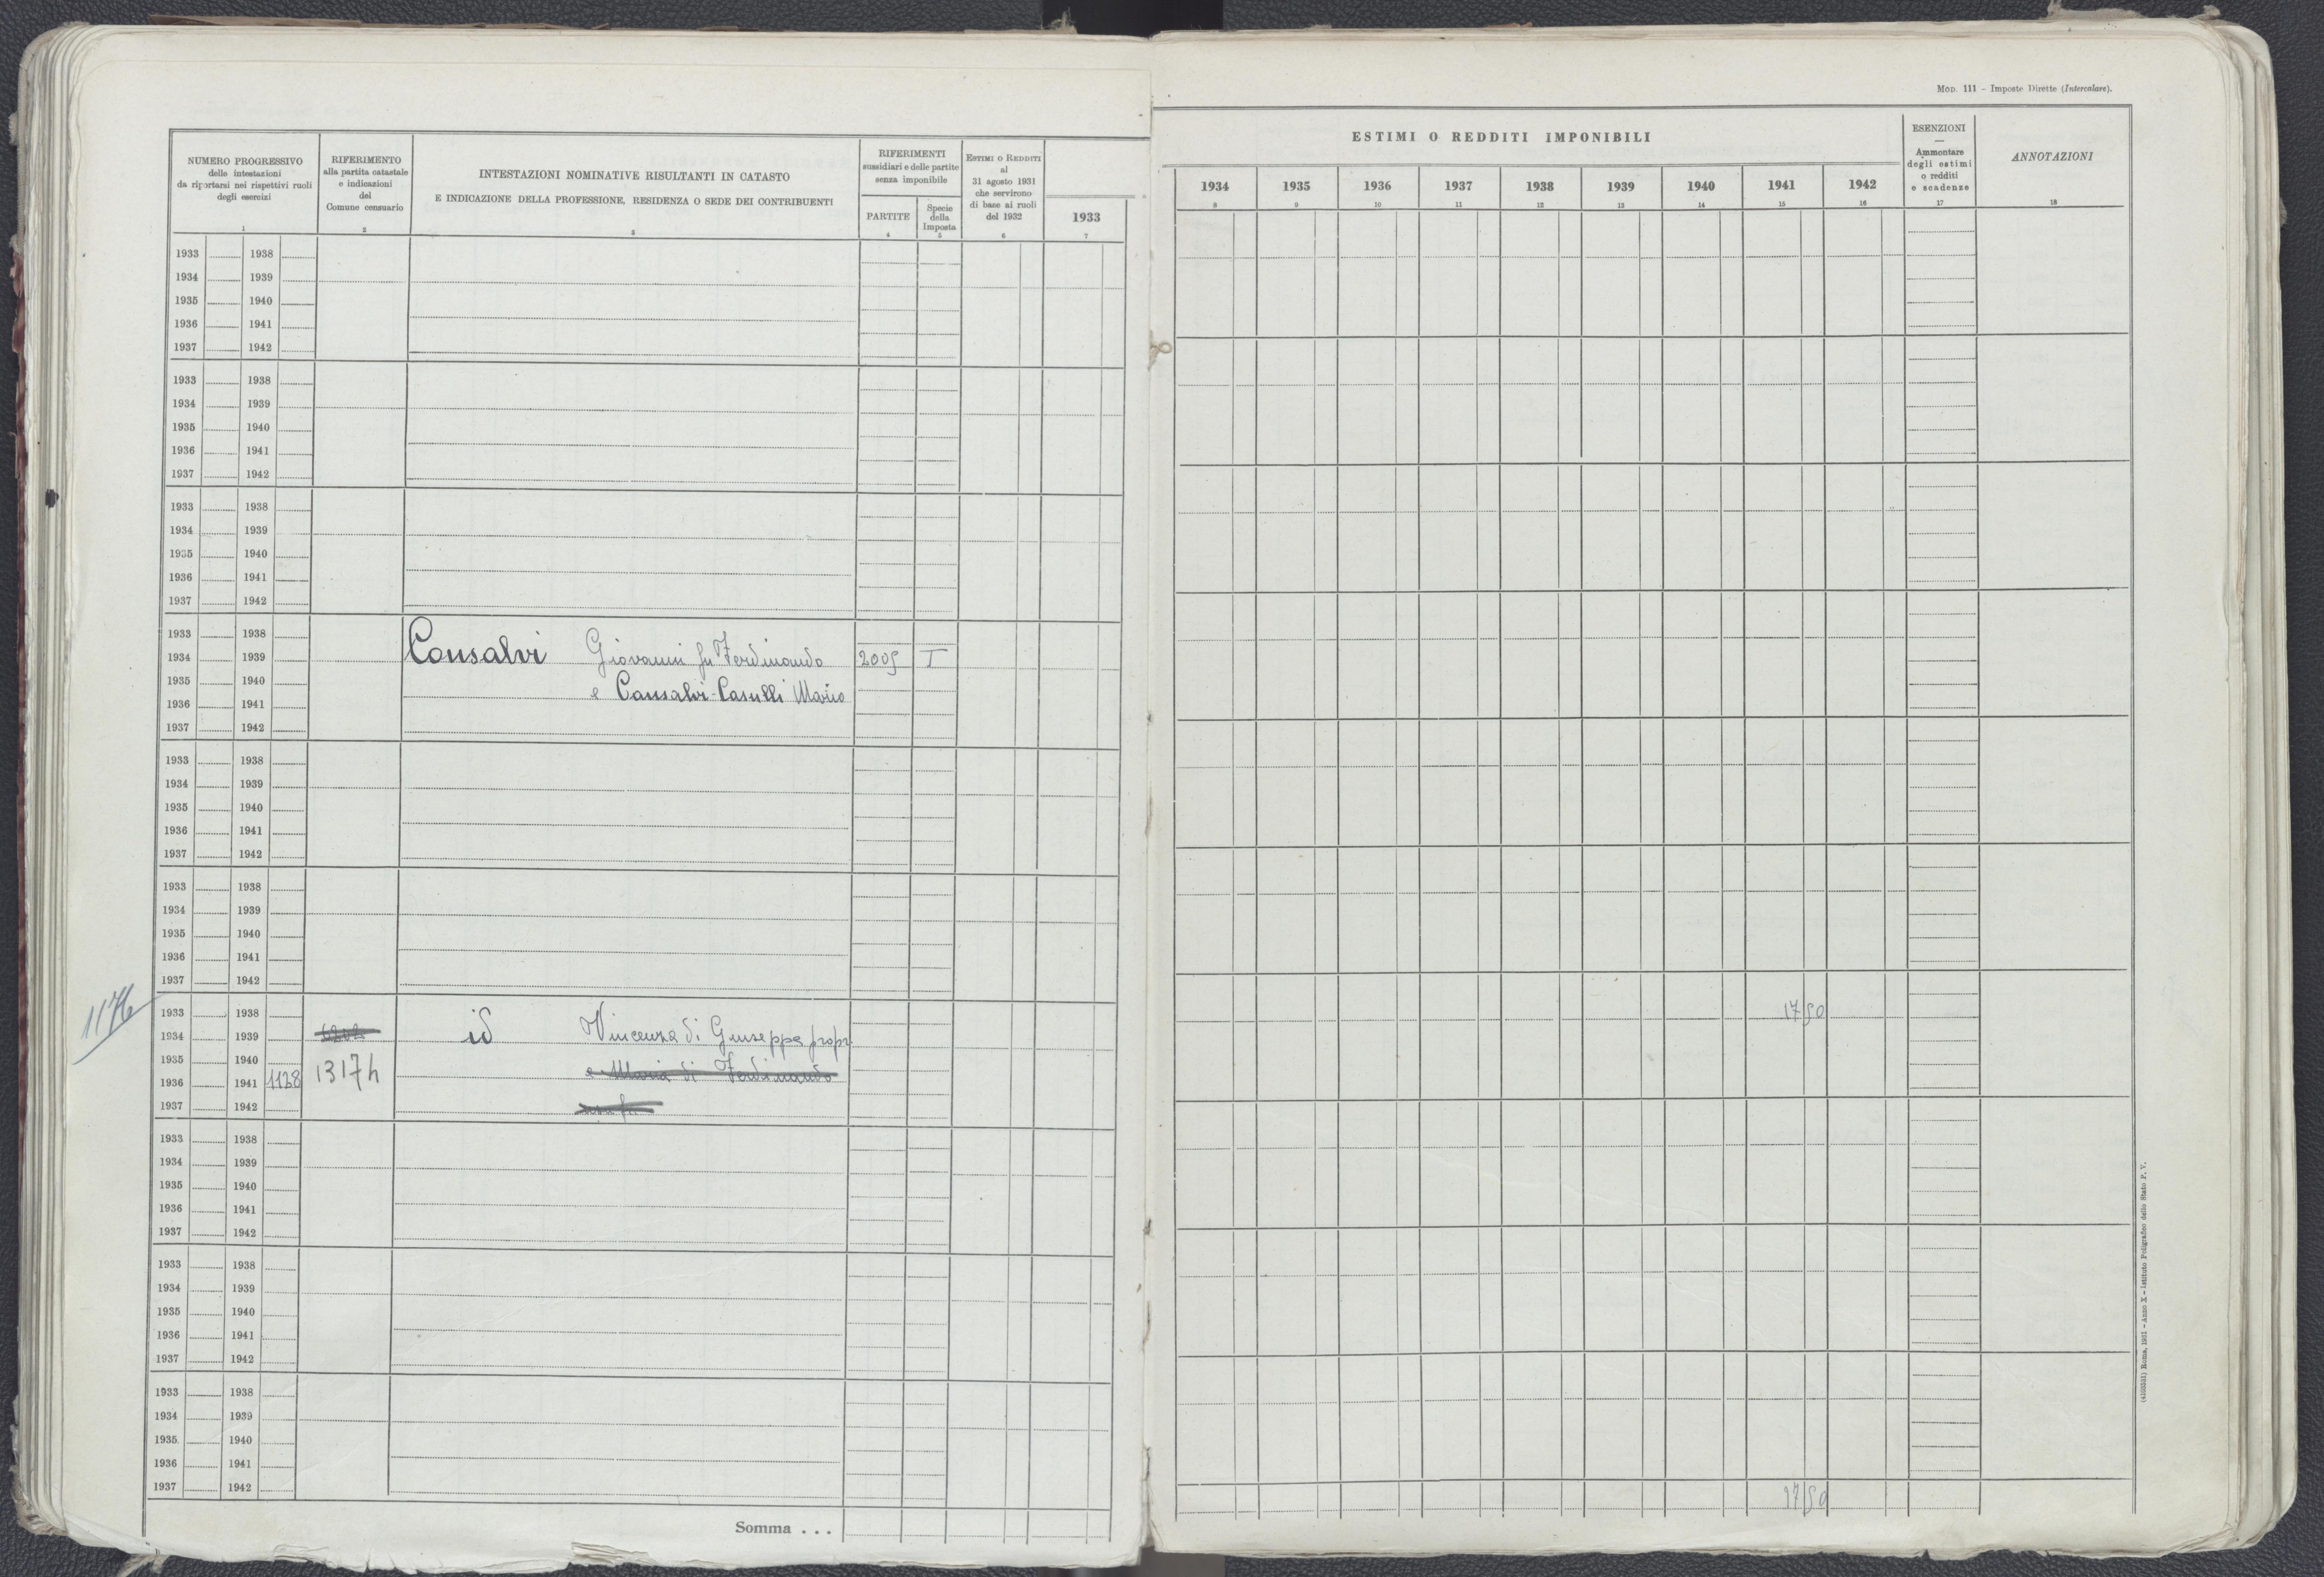 MOD. 111 – Imposte Dirette (Intercalare).
NUMERO PROGRESSIVO
delle intestazioni
da riportarsi nei rispettivi ruoli
degli esercizi
1
RIFERIMENTO
alla partita catastale
e indicazioni
del
Comune censuario
2
INTESTAZIONI NOMINATIVE RISULTANTI IN CATASTO
E INDICAZIONE DELLA PROFESSIONE, RESIDENZA O SEDE DEI CONTRIBUENTI
3
RIFERIMENTI
sussidiari e delle partite
senza imponibile
PARTITE
4
Specie
della
Imposta
5
ESTIMI O REDDITI
al
31 agosto 1931
che servirono
di base ai ruoli
del 1932
6
1933
7
ESTIMI O REDDITI IMPONIBILI
1934 1935 1936 1937 1938 1939 1940 1941 1942
8 9 10 11 12 13 14 15 16
ESENZIONI
—
Ammontare
degli estimi
o redditi
e scadenze
17
ANNOTAZIONI
18
1933 1938
1934 1939
1935 1940
1936 1941
1937 1942
1933 1938
1934 1939
1935 1940
1936 1941
1937 1942
1933 1938
1934 1939
1935 1940
1936 1941
1937 1942
1933 1938
1934 1939 Consalvi Giovanni fu Ferdinando 2005 T
1935 1940
1936 1941 e Consalvi-Casulli Mario
1937 1942
1933 1938
1934 1939
1935 1940
1936 1941
1937 1942
1933 1938
1934 1939
1935 1940
1936 1941
1937 1942
1176
1933 1938 17 50
1934 1939 id Vincenza di Giuseppe propr
1935 1940
1936 1941 1128 1317h e Maria di Ferdinando
1937 1942
1933 1938
1934 1939
1935 1940
1936 1941
1937 1942
1933 1938
1934 1939
1935 1940
1936 1941
1937 1942
1933 1938
1934 1939
1935 1940
1936 1941
1937 1942
Somma . . . 17 50
Roma, 1931 – Anno X – Istituto Poligrafico dello Stato P. V.